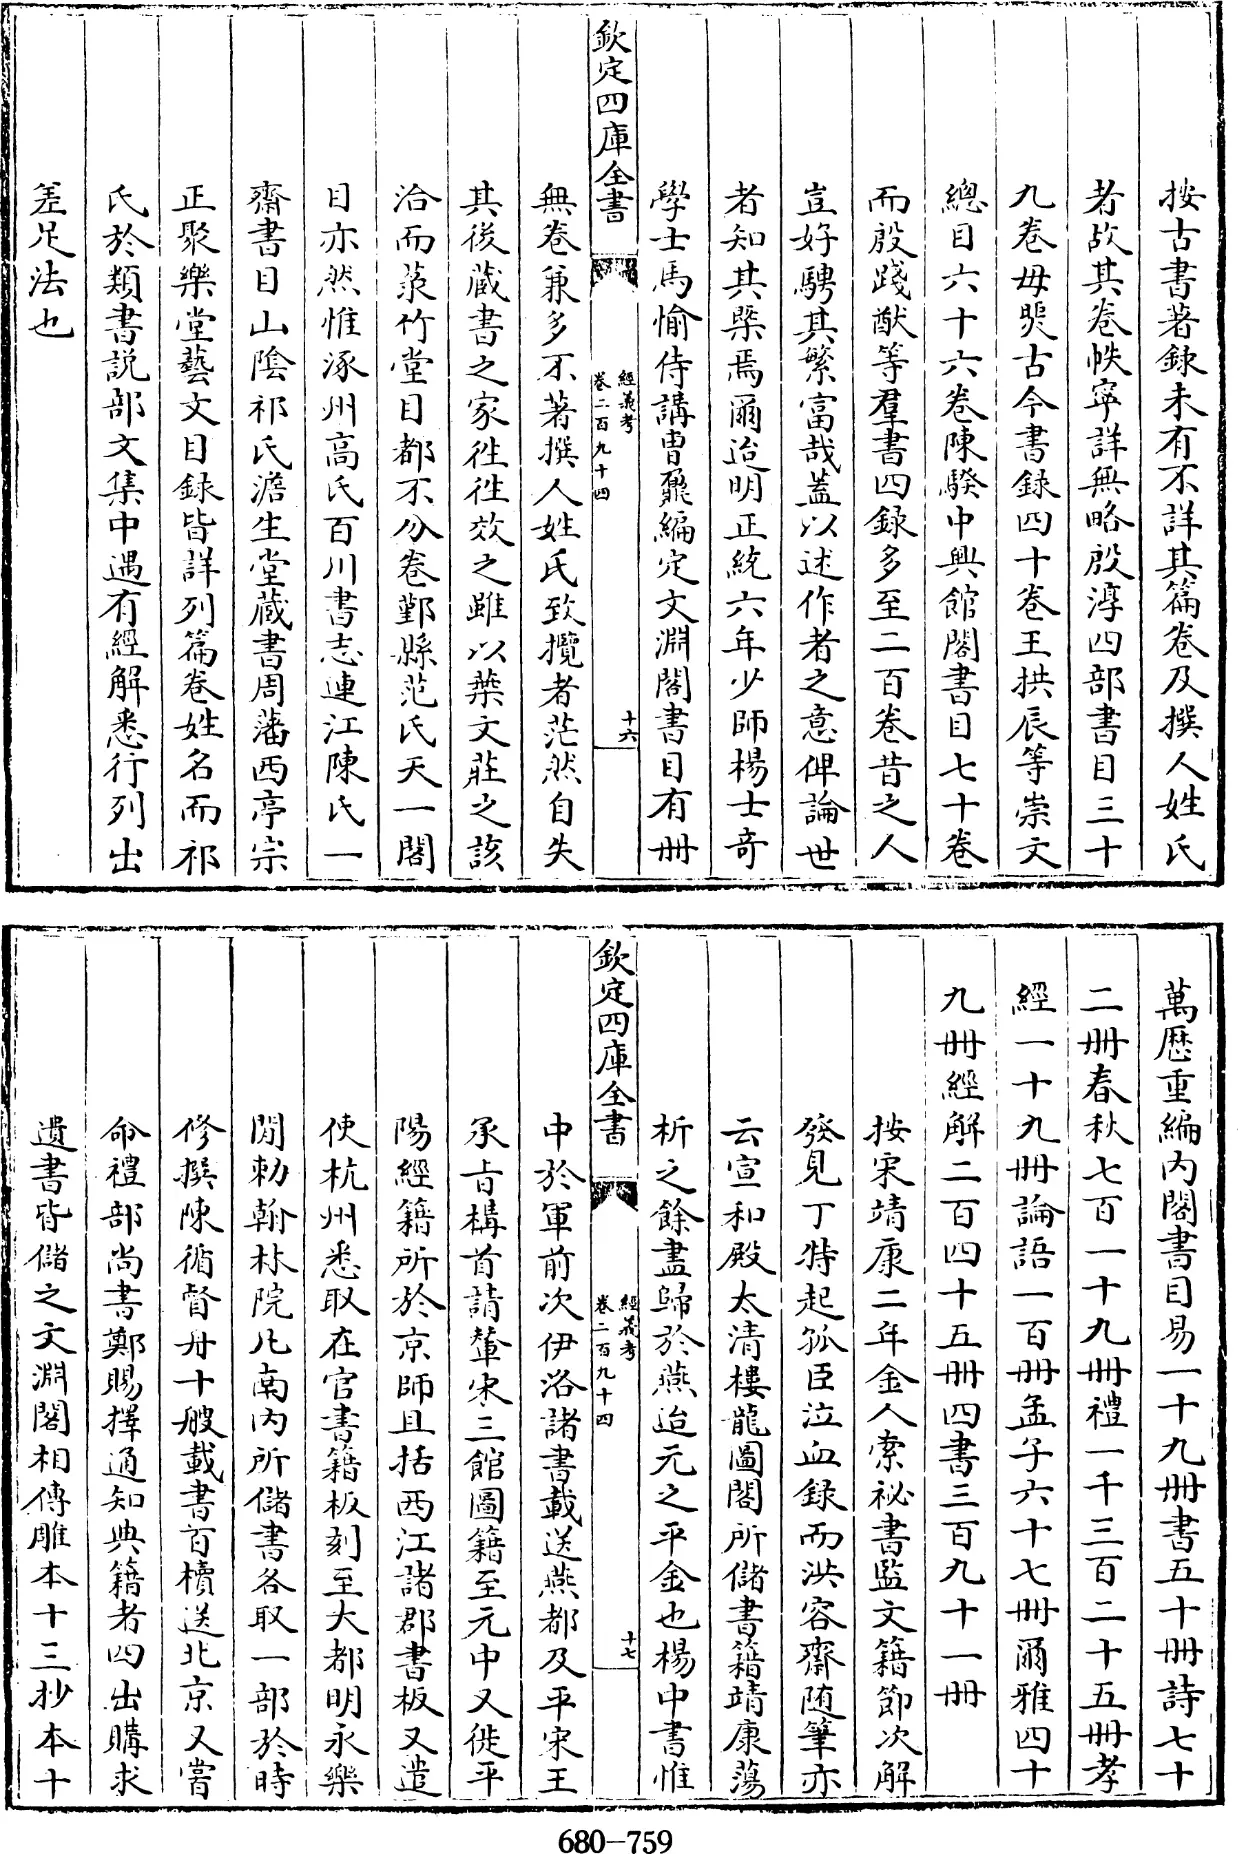 按古書著錄未有不詳其篇卷及撰人姓氏
者故其卷帙寧詳無略殷淳四部書目三十
九卷毋煚古今書錄四十卷王拱辰等崇文
總目六十六卷陳騤中興館閣書目七十卷
而殷踐猷等羣書四錄多至二百卷昔之人
豈好騁其繁富哉蓋以述作者之意俾論世
者知其槩焉爾迨明正統六年少師楊士奇
學士馬愉侍講曹鼐編定文淵閣書目有冊
欽定四庫全書
經義考
卷二百九十四
十六
無卷兼多不著撰人姓氏致攬者茫然自失
其後藏書之家徃徃效之雖以葉文莊之該
洽而菉竹堂目都不分卷鄞縣范氏天一閣
目亦然惟涿州高氏百川書志連江陳氏一
齋書目山陰祁氏澹生堂藏書周藩西亭宗
正聚樂堂藝文目録皆詳列篇卷姓名而祁
氏於類書説部文集中遇有經解悉行列出
差足法也
萬歷重編内閣書目易一十九冊書五十冊詩七十
二冊春秋七百一十九冊禮一千三百二十五冊孝
經一十九冊論語一百冊孟子六十七冊爾雅四十
九冊經解二百四十五冊四書三百九十一冊
按宋靖康二年金人索祕書監文籍節次解
發見丁特起孤臣泣血錄而洪容齋随筆亦
云宣和殿太清樓龍圖閣所儲書籍靖康蕩
析之餘盡歸於燕迨元之平金也楊中書惟
欽定四庫全書
經義考
卷二百九十四
十七
中於軍前次伊洛諸書載送燕都及平宋王
承㫖構首請輦宋三館圖籍至元中又徙平
陽經籍所於京師且括西江諸郡書板又遣
使杭州悉取在官書籍板刻至大都明永樂
間勅翰林院凡南内所儲書各取一部於時
修撰陳循督舟十艘載書百櫝送北京又嘗
命禮部尚書鄭賜擇通知典籍者四出購求
遺書皆儲之文淵閣相傳雕本十三抄本十
680-759